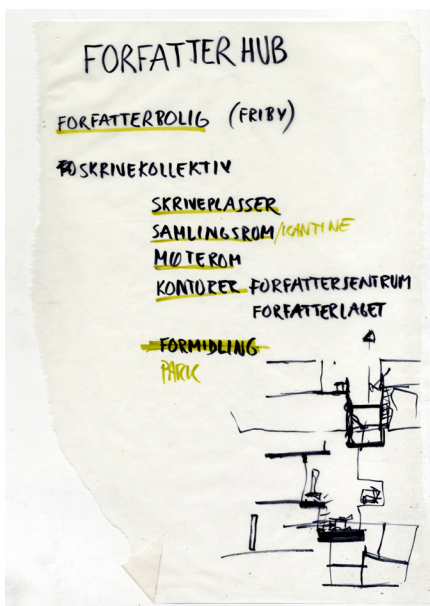 FORFATTER HUB
FORFATTERBOLIG (FRIBY)
SKRIVEKOLLEKTIV
SKRIVEPLASSER
SAMLINGSROM/KANTINE
MØTEROM
KONTORER FORFATTERSENTRUM
FORFATTERLAGET
FORMIDLING
PARK